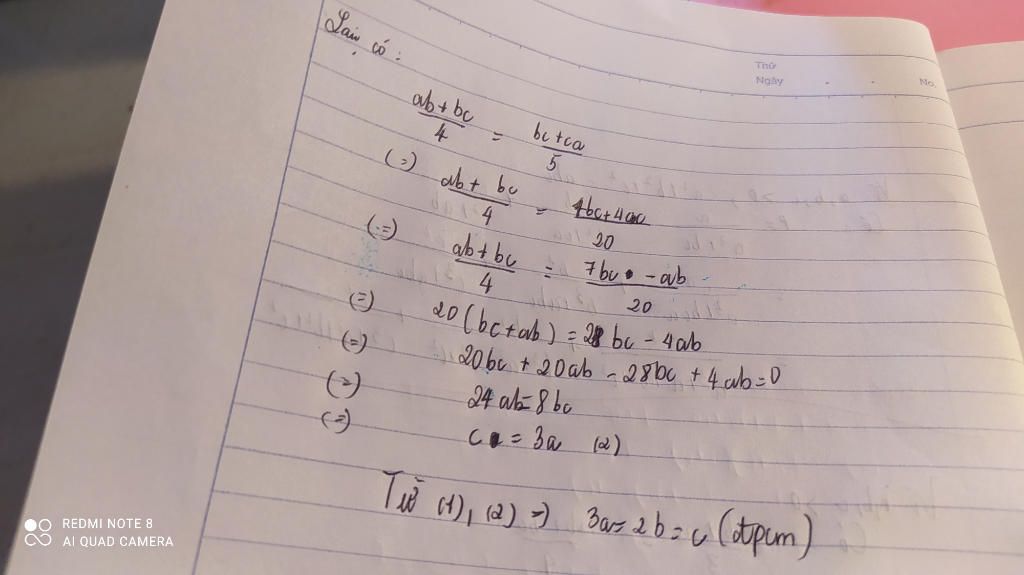 Lại có:
Thứ
Ngày
No.
ab + bc / 4 = bc + ca / 5
(=) ab + bc / 4 = 4bc + 4ac / 20
(=) ab + bc / 4 = 7bc - ab / 20
(=) 20(bc + ab) = 28bc - 4ab
(=) 20bc + 20ab - 28bc + 4ab = 0
(=) 24ab = 8bc
(=) c = 3a (2)
Từ (1), (2) => 3a = 2b = c (đpcm)
REDMI NOTE 8
AI QUAD CAMERA